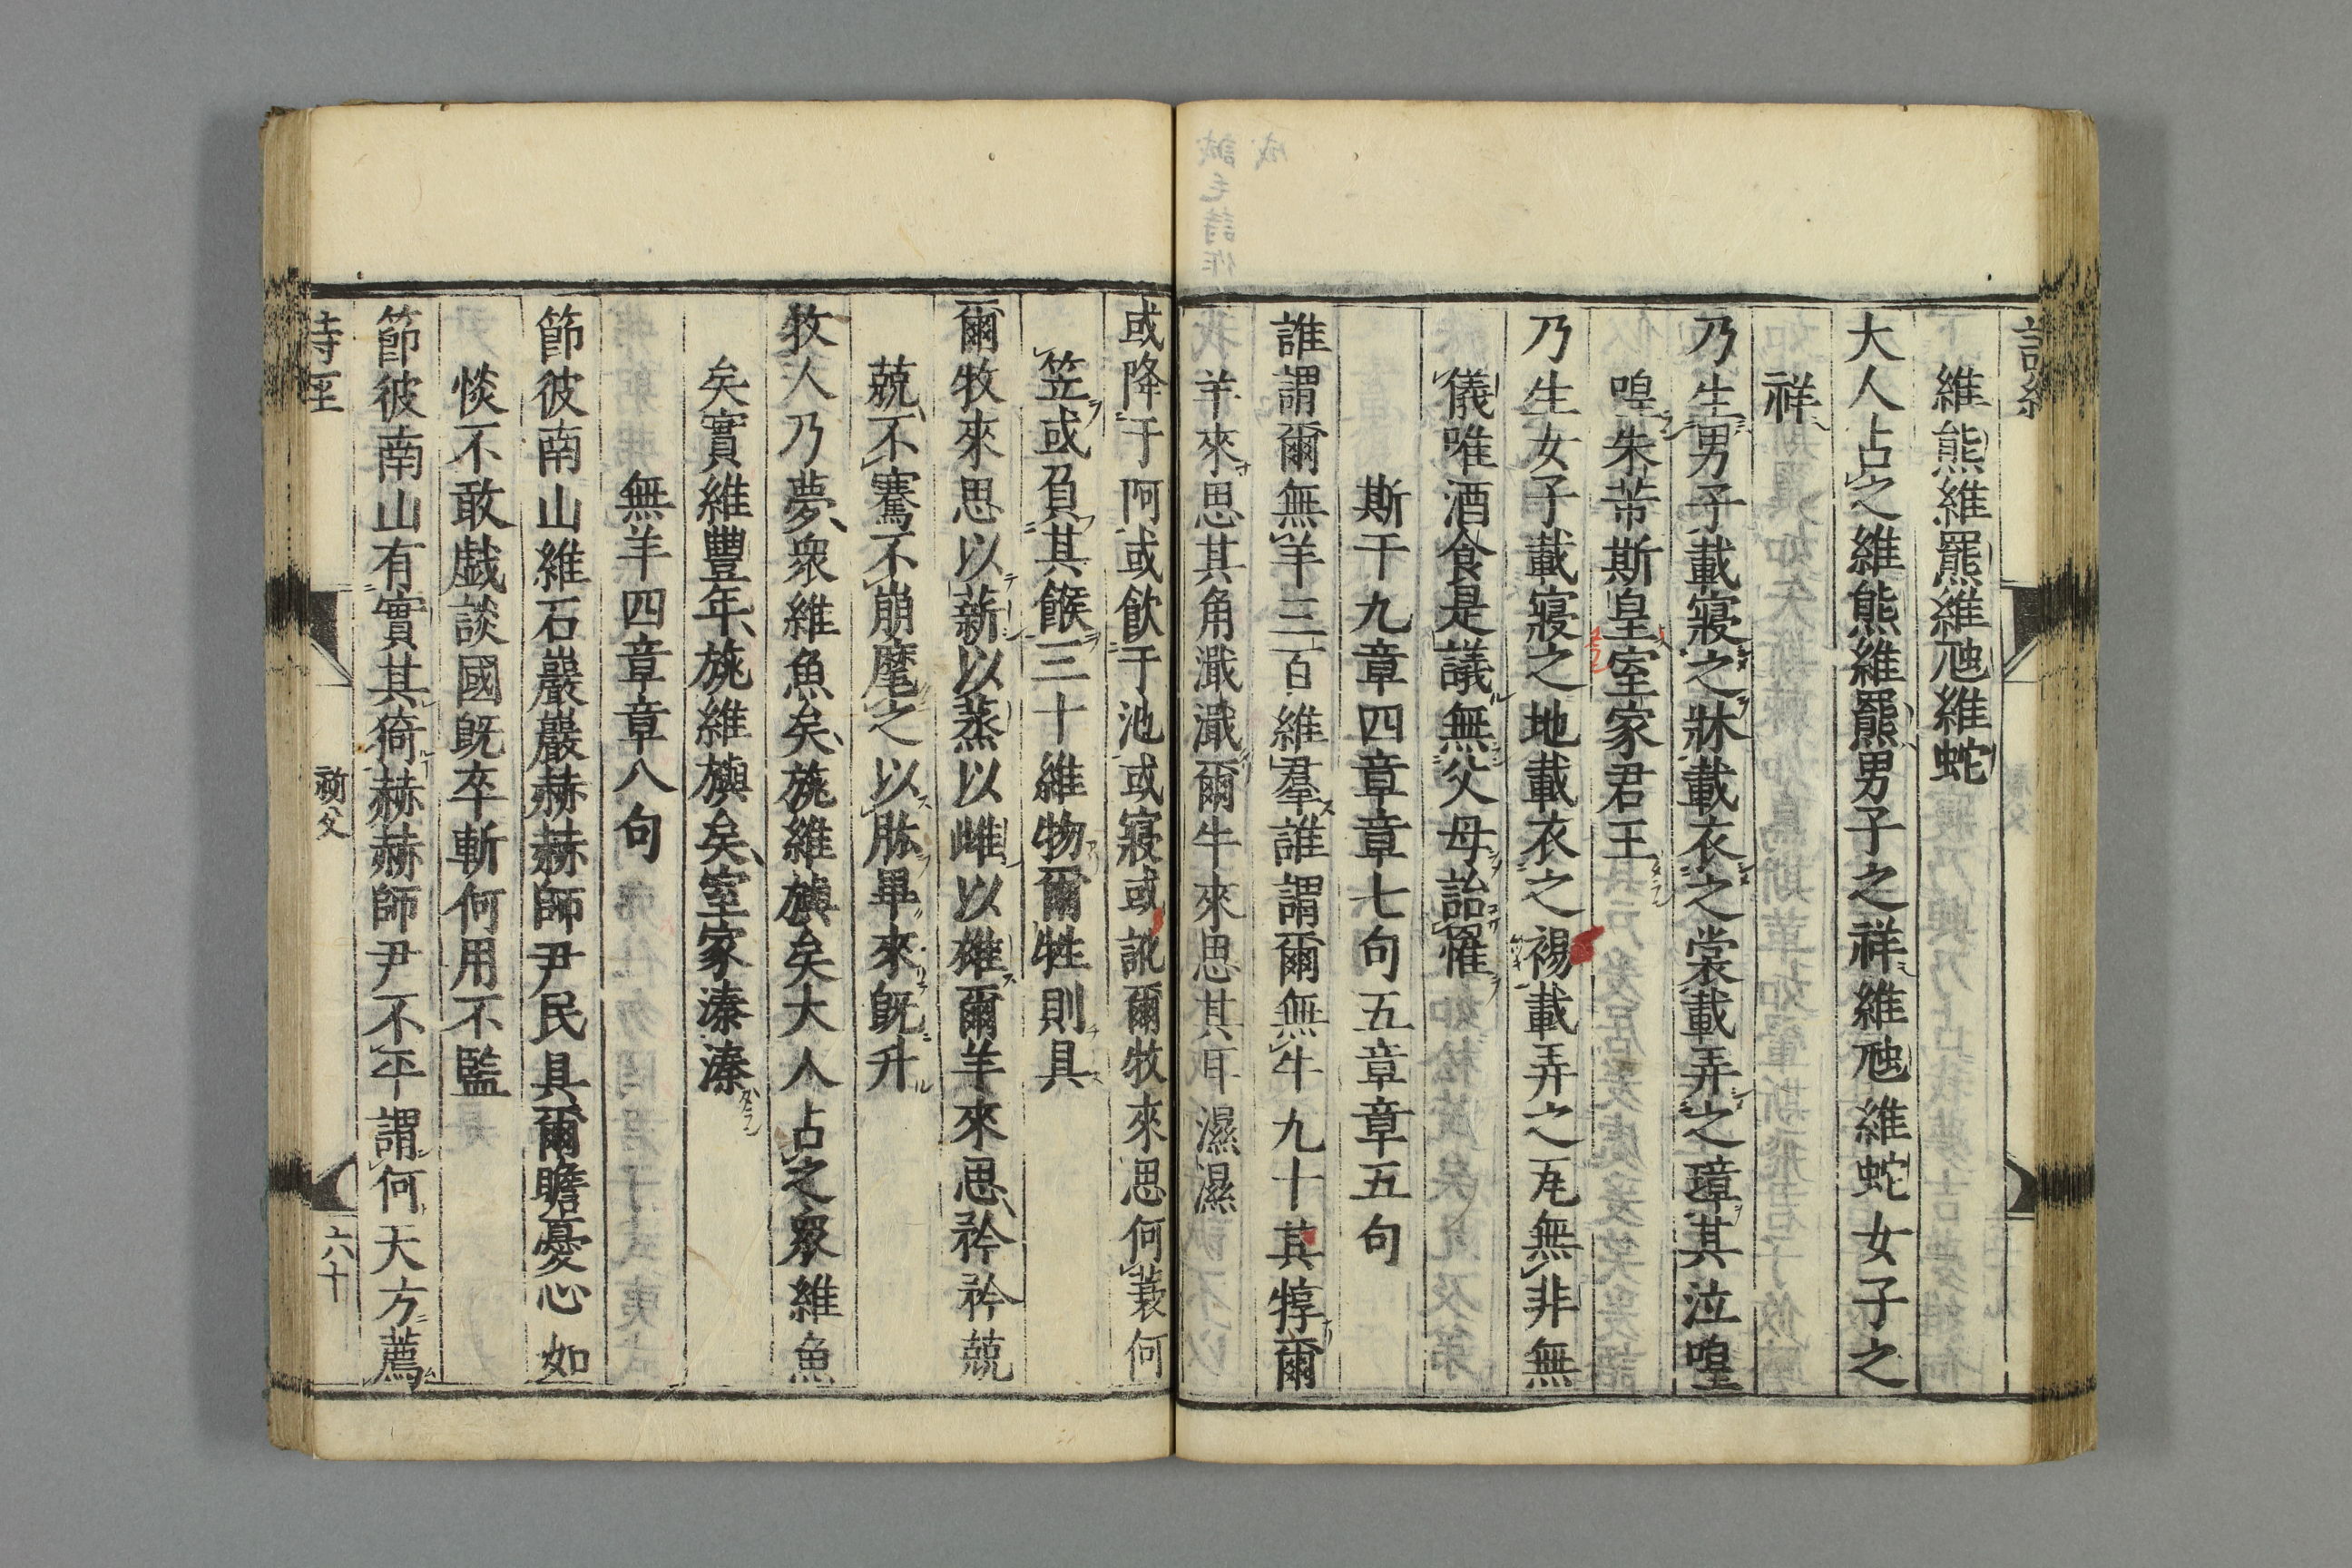 維熊維羆維虺維蛇
大人占之維熊維羆男子之祥維虺維蛇女子之
祥
乃生男子載寢之牀載衣之裳載弄之璋其泣喤
喤朱芾斯皇室家君王
乃生女子載寢之地載衣之裼載弄之瓦無非無
儀唯酒食是議無父母詒罹
斯干九章四章章七句五章章五句
誰謂爾無羊三百維羣誰謂爾無牛九十其犉爾
羊來思其角濈濈爾牛來思其耳濕濕
或降于阿或飮于池或寢或訛爾牧來思何蓑何
笠或負其餱三十維物爾牲則具
爾牧來思以薪以蒸以雌以雄爾羊來思矜矜兢
兢不騫不崩麾之以肱畢來旣升
牧人乃夢衆維魚矣旐維旟矣大人占之衆維魚
矣實維豐年旐維旟矣室家溱溱
無羊四章章八句
節彼南山維石巖巖赫赫師尹民具爾瞻憂心如
惔不敢戯談國旣卒斬何用不監
節彼南山有實其猗赫赫師尹不平謂何天方薦
詩經
祈父
六十